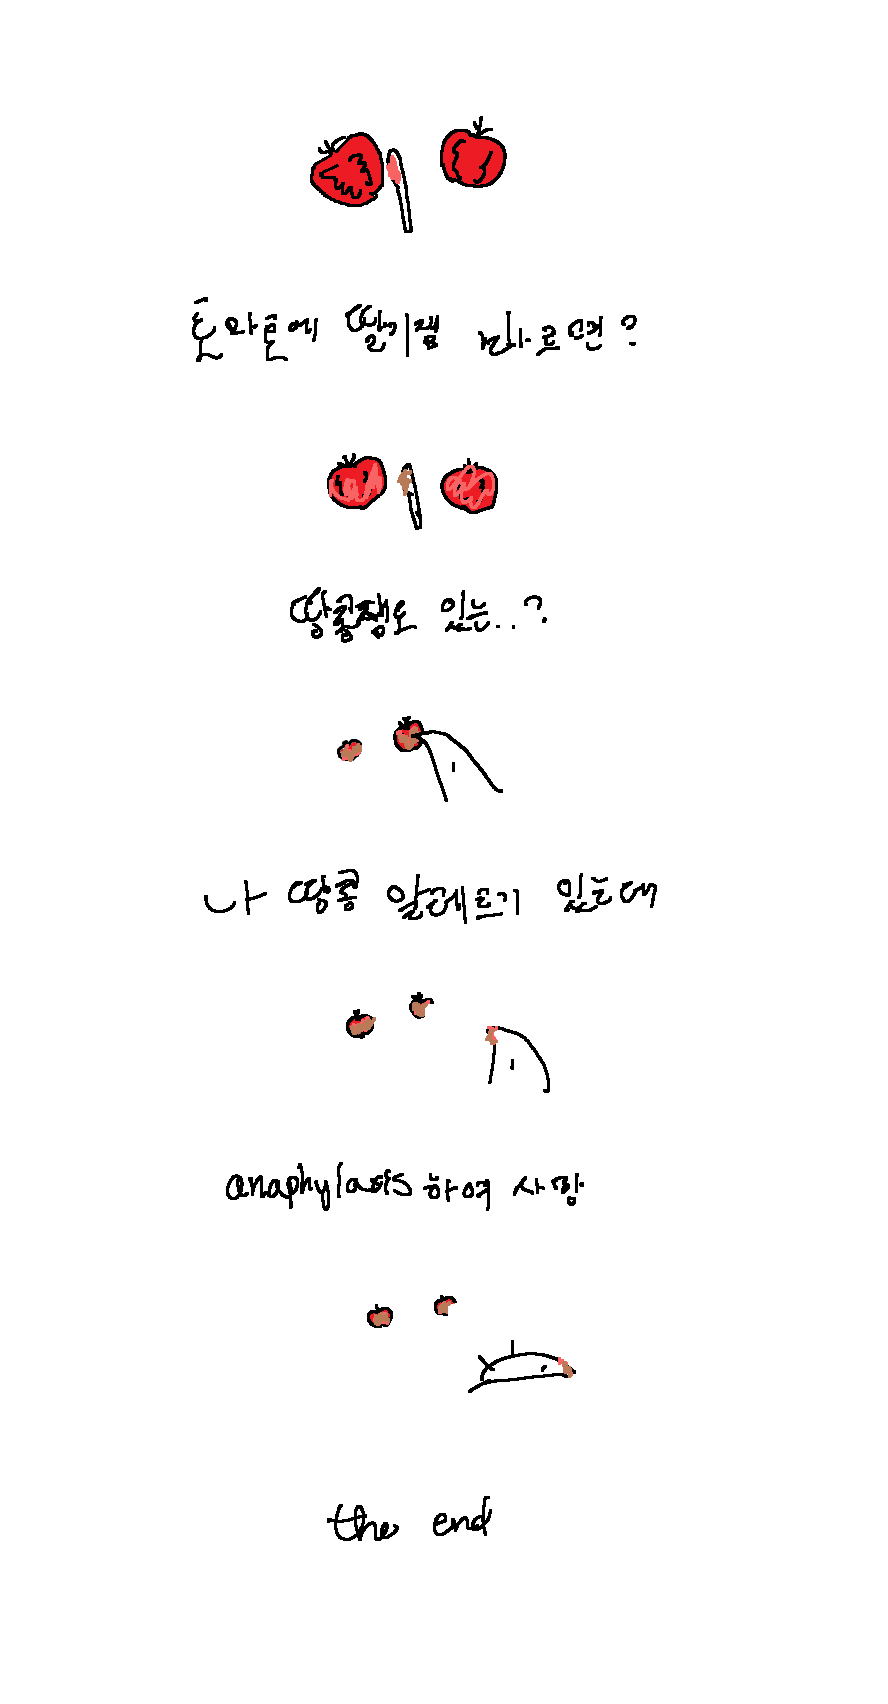 토마토에 딸기잼 바르면?
땅콩쨈도 있는..?
나 땅콩 알레르기 있는데
anaphylaxis 하여 사망
the end